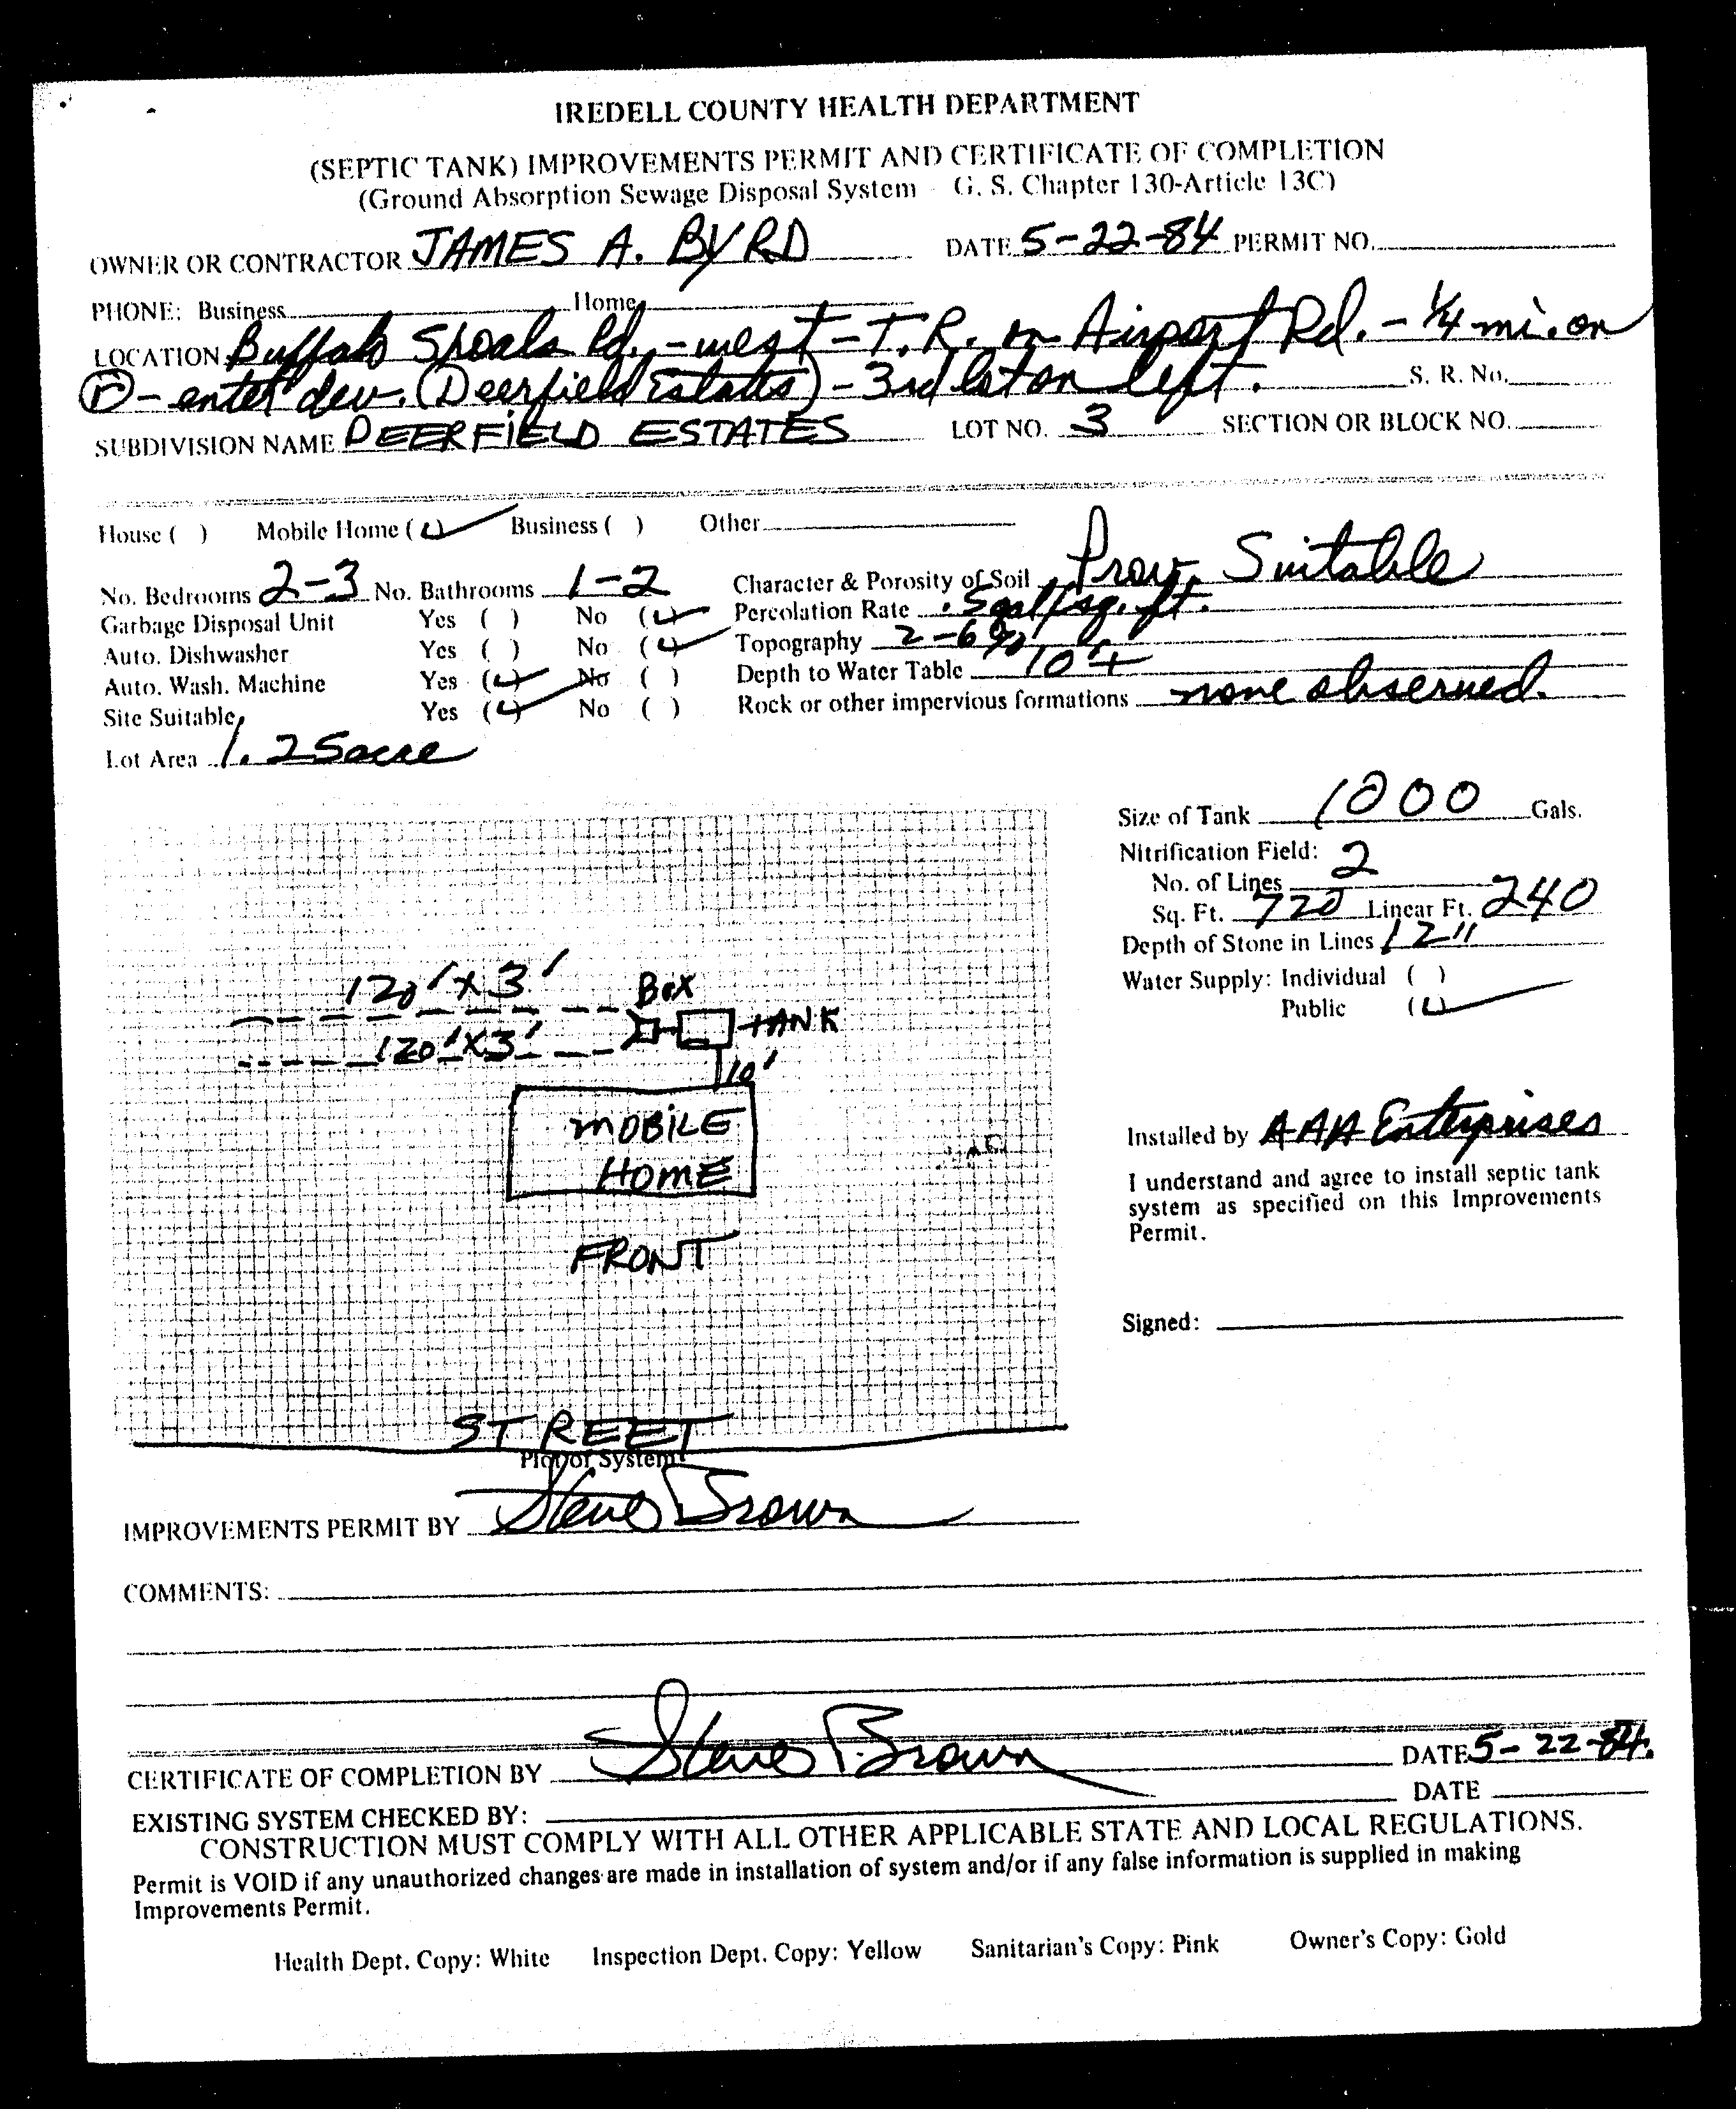 IREDELL COUNTY HEALTH DEPARTMENT
(SEPTIC TANK) IMPROVEMENTS PERMIT AND CERTIFICATE OF COMPLETION
(Ground Absorption Sewage Disposal System - G. S. Chapter 130-Article 13C)
OWNER OR CONTRACTOR JAMES A. BYRD DATE 5-22-84 PERMIT NO.
PHONE: Business Home
LOCATION Buffalo Shoals Rd. - west - T.R. on Airport Rd. - 1/4 mi. on
R - enter dev. (Deerfield Estates) - 3rd lot on left. S. R. No.
SUBDIVISION NAME DEERFIELD ESTATES LOT NO. 3 SECTION OR BLOCK NO.
House ( ) Mobile Home (✓) Business ( ) Other
No. Bedrooms 2-3 No. Bathrooms 1-2 Character & Porosity of Soil Prov. Suitable
Garbage Disposal Unit Yes ( ) No (✓) Percolation Rate .5gal/sq.ft.
Auto. Dishwasher Yes ( ) No (✓) Topography 2-6%
Auto. Wash. Machine Yes (✓) No ( ) Depth to Water Table 10'+
Site Suitable Yes (✓) No ( ) Rock or other impervious formations none observed.
Lot Area 1.25 acre
Size of Tank 1000 Gals.
Nitrification Field:
No. of Lines 2
Sq. Ft. 720 Linear Ft. 240
Depth of Stone in Lines 12"
Water Supply: Individual ( )
Public (✓)
120' X 3' BOX
TANK
120' X 3'
10'
MOBILE
HOME
FRONT
STREET
Plot of System
Installed by AAA Enterprises
I understand and agree to install septic tank
system as specified on this Improvements
Permit.
Signed:
IMPROVEMENTS PERMIT BY Steve Brown
COMMENTS:
CERTIFICATE OF COMPLETION BY Steve Brown DATE 5-22-84.
EXISTING SYSTEM CHECKED BY: DATE
CONSTRUCTION MUST COMPLY WITH ALL OTHER APPLICABLE STATE AND LOCAL REGULATIONS.
Permit is VOID if any unauthorized changes are made in installation of system and/or if any false information is supplied in making
Improvements Permit.
Health Dept. Copy: White Inspection Dept. Copy: Yellow Sanitarian's Copy: Pink Owner's Copy: Gold